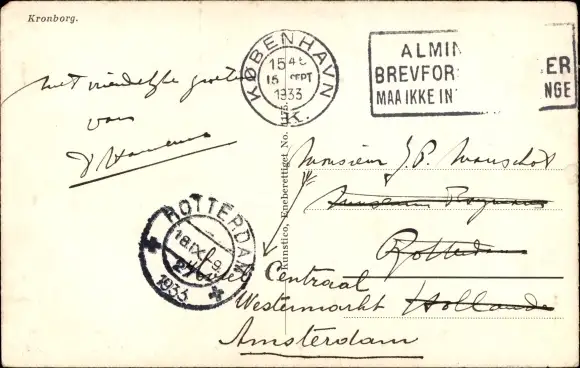 Kronborg.
KØBENHAVN
15 46
15 SEPT
1933
K.
ALMIN
BREVFOR ER
MAA IKKE IN NGE
met vriendelijke groeten
van
Kunstico, Eneberettiget No. 175.
Monsieur J. P. Manschot
Museum Boymans
Rotterdam
Hollande
ROTTERDAM
18 IX
1933
Hotel Centraal
Westermarkt
Amsterdam